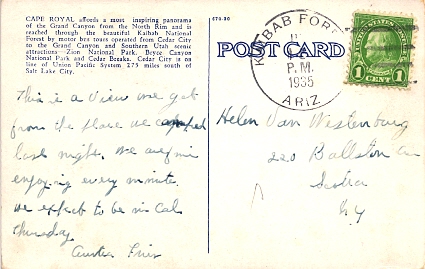 CAPE ROYAL affords a most inspiring panorama
of the Grand Canyon from the North Rim and is
reached through the beautiful Kaibab National
Forest by motor bus tours operated from Cedar City
to the Grand Canyon and Southern Utah scenic
attractions—Zion National Park, Bryce Canyon
National Park and Cedar Breaks. Cedar City is on
line of Union Pacific System 275 miles south of
Salt Lake City.
This is a view we got
from the place we camped
last night. We are
enjoying every minute
we expect to be in Cal
Thursday
POST CARD
KAIBAB FOR
P.M.
1935
ARIZ
1 CENT 1
Helen Van Westenburg
220 Ballston
Scotia
NY